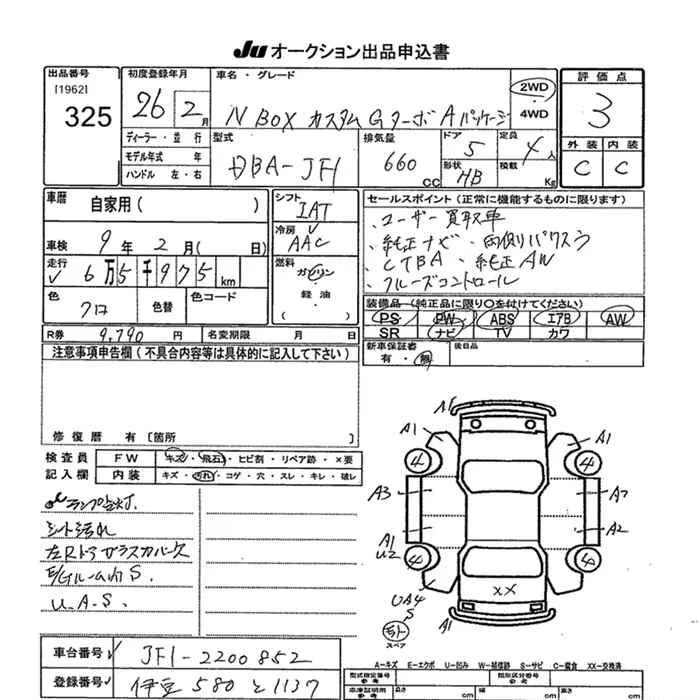 JU オークション出品申込書
出品番号 [1962] 325
初度登録年月 26 2月
車名・グレード N BOX カスタム Gターボ Aパッケージ
2WD 4WD
評価点 3
外装 内装 C C
ディーラー・並行
モデル年式 年
ハンドル 左・右
型式 DBA-JF1
排気量 660 CC
ドア 5
形状 HB
定員 4人
積載 Kg
車歴 自家用( )
シフト IAT
冷房 AAC
車検 9年 2月( 日)
走行 6万5千975 km
燃料 ガソリン 軽油・
色 クロ 色替 色コード
R券 9,790 円 名変期限 月 日
セールスポイント(正常に機能するものに限ります)
、ユーザー買取車
、純正ナビ、両側パワスラ
、CTBA、純正AW
、クルーズコントロール
装備品(純正品に限り○を付けてください)
PS PW ABS エアB AW
SR ナビ TV カワ
新車保証書 有・無 後日品
注意事項申告欄(不具合内容等は具体的に記入して下さい)
修復歴 有〔箇所 〕
検査員 記入欄
FW キズ・飛石・ヒビ割・リペア跡・×要
内装 キズ・汚れ・コゲ・穴・スレ・キレ・破レ
ランプ点灯.
シート汚れ
左Rドアガラスカバーキズ
E/Gルーム内S.
U.A.S.
A1
A1 A1
4 4
A3 A2
A1 U2 A2
4 4
XX
UA4 S
A1
スペア
A−キズ E−エクボ U−凹み W−補修跡 S−サビ C−腐食 XX−交換済
車台番号 JF1-2200852
登録番号 伊豆 580 と 1137
型式指定番号 類別区分番号
車庫証明用参考 長さ cm 幅 cm 高さ cm